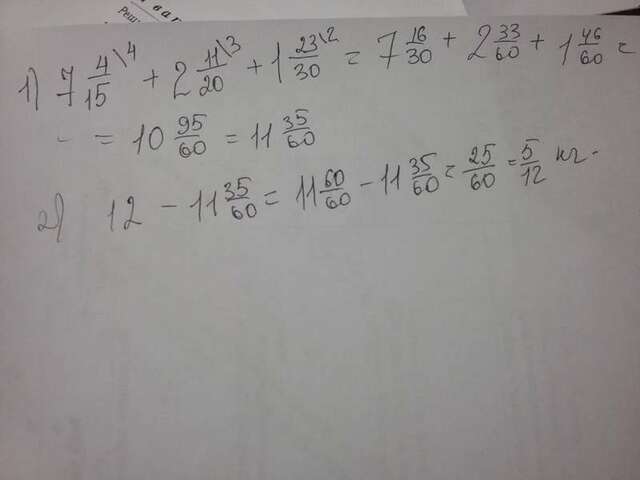 в а г
Реш
1) 7 4/15 \4 + 2 11/20 \3 + 1 23/30 \2 = 7 16/30 + 2 33/60 + 1 46/60 =
- = 10 95/60 = 11 35/60
2) 12 - 11 35/60 = 11 60/60 - 11 35/60 = 25/60 = 5/12 кг.